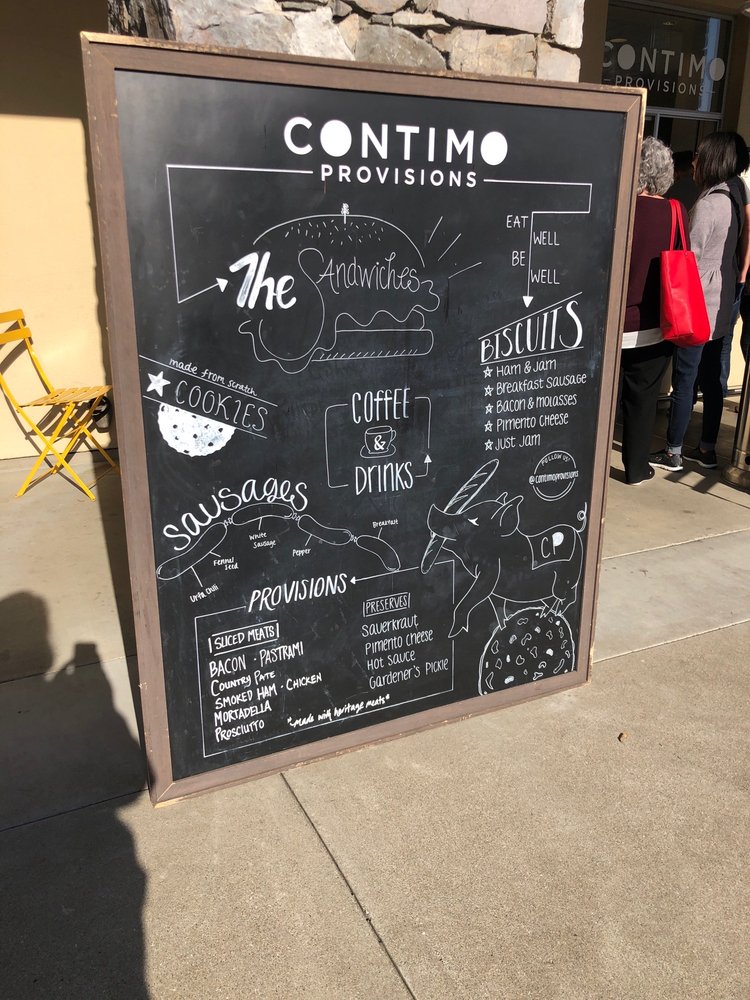 CONTIMO
PROVISIONS
CONTIMO
PROVISIONS
The Sandwiches
EAT
WELL
BE
WELL
BISCUITS
Ham & Jam
Breakfast Sausage
Bacon & Molasses
Pimento Cheese
Just Jam
made from scratch
COOKIES
COFFEE
&
DRINKS
FOLLOW US
@contimoprovisions
Sausages
Urfa Chili
Fennel
Seed
White
Sausage
Pepper
Breakfast
CP
PROVISIONS
SLICED MEATS
BACON · PASTRAMI
COUNTRY PATE
SMOKED HAM · CHICKEN
MORTADELLA
PROSCIUTTO
"made with heritage meats"
PRESERVES
Sauerkraut
Pimento Cheese
Hot Sauce
Gardener's Pickle